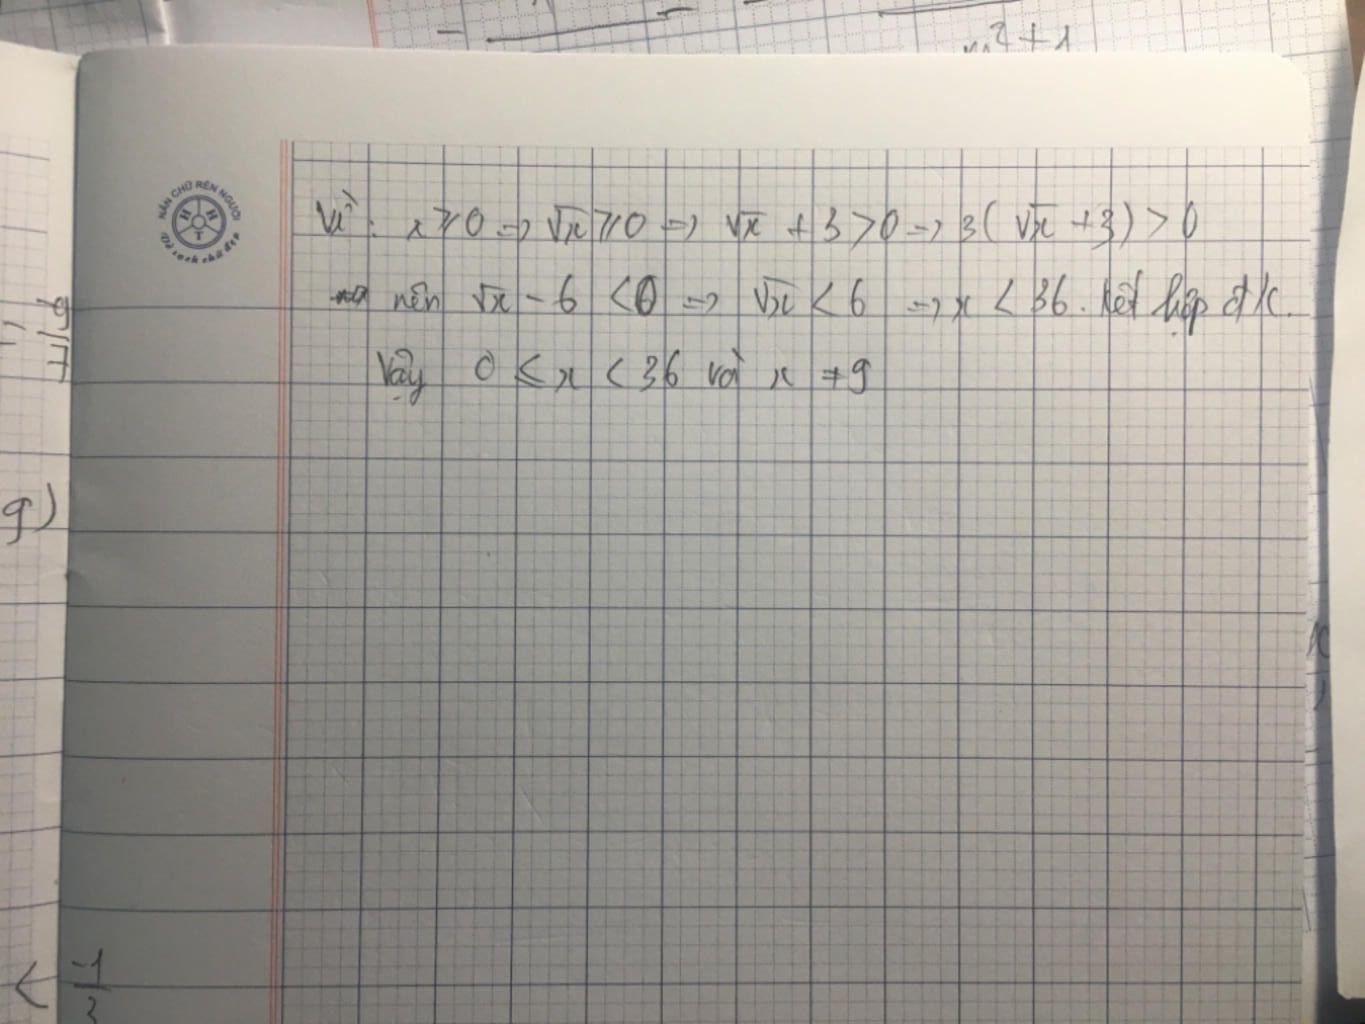 m² + 1
NẮN CHỮ RÈN NGƯỜI
H H T
Vở sạch chữ đẹp
Vì: x ⩾ 0 => √x ⩾ 0 => √x + 3 > 0 => 3(√x + 3) > 0
nên √x - 6 < 0 => √x < 6 => x < 36. Kết hợp đ/k.
Vậy 0 ≤ x < 36 và x ≠ 9
9)
< -1/3